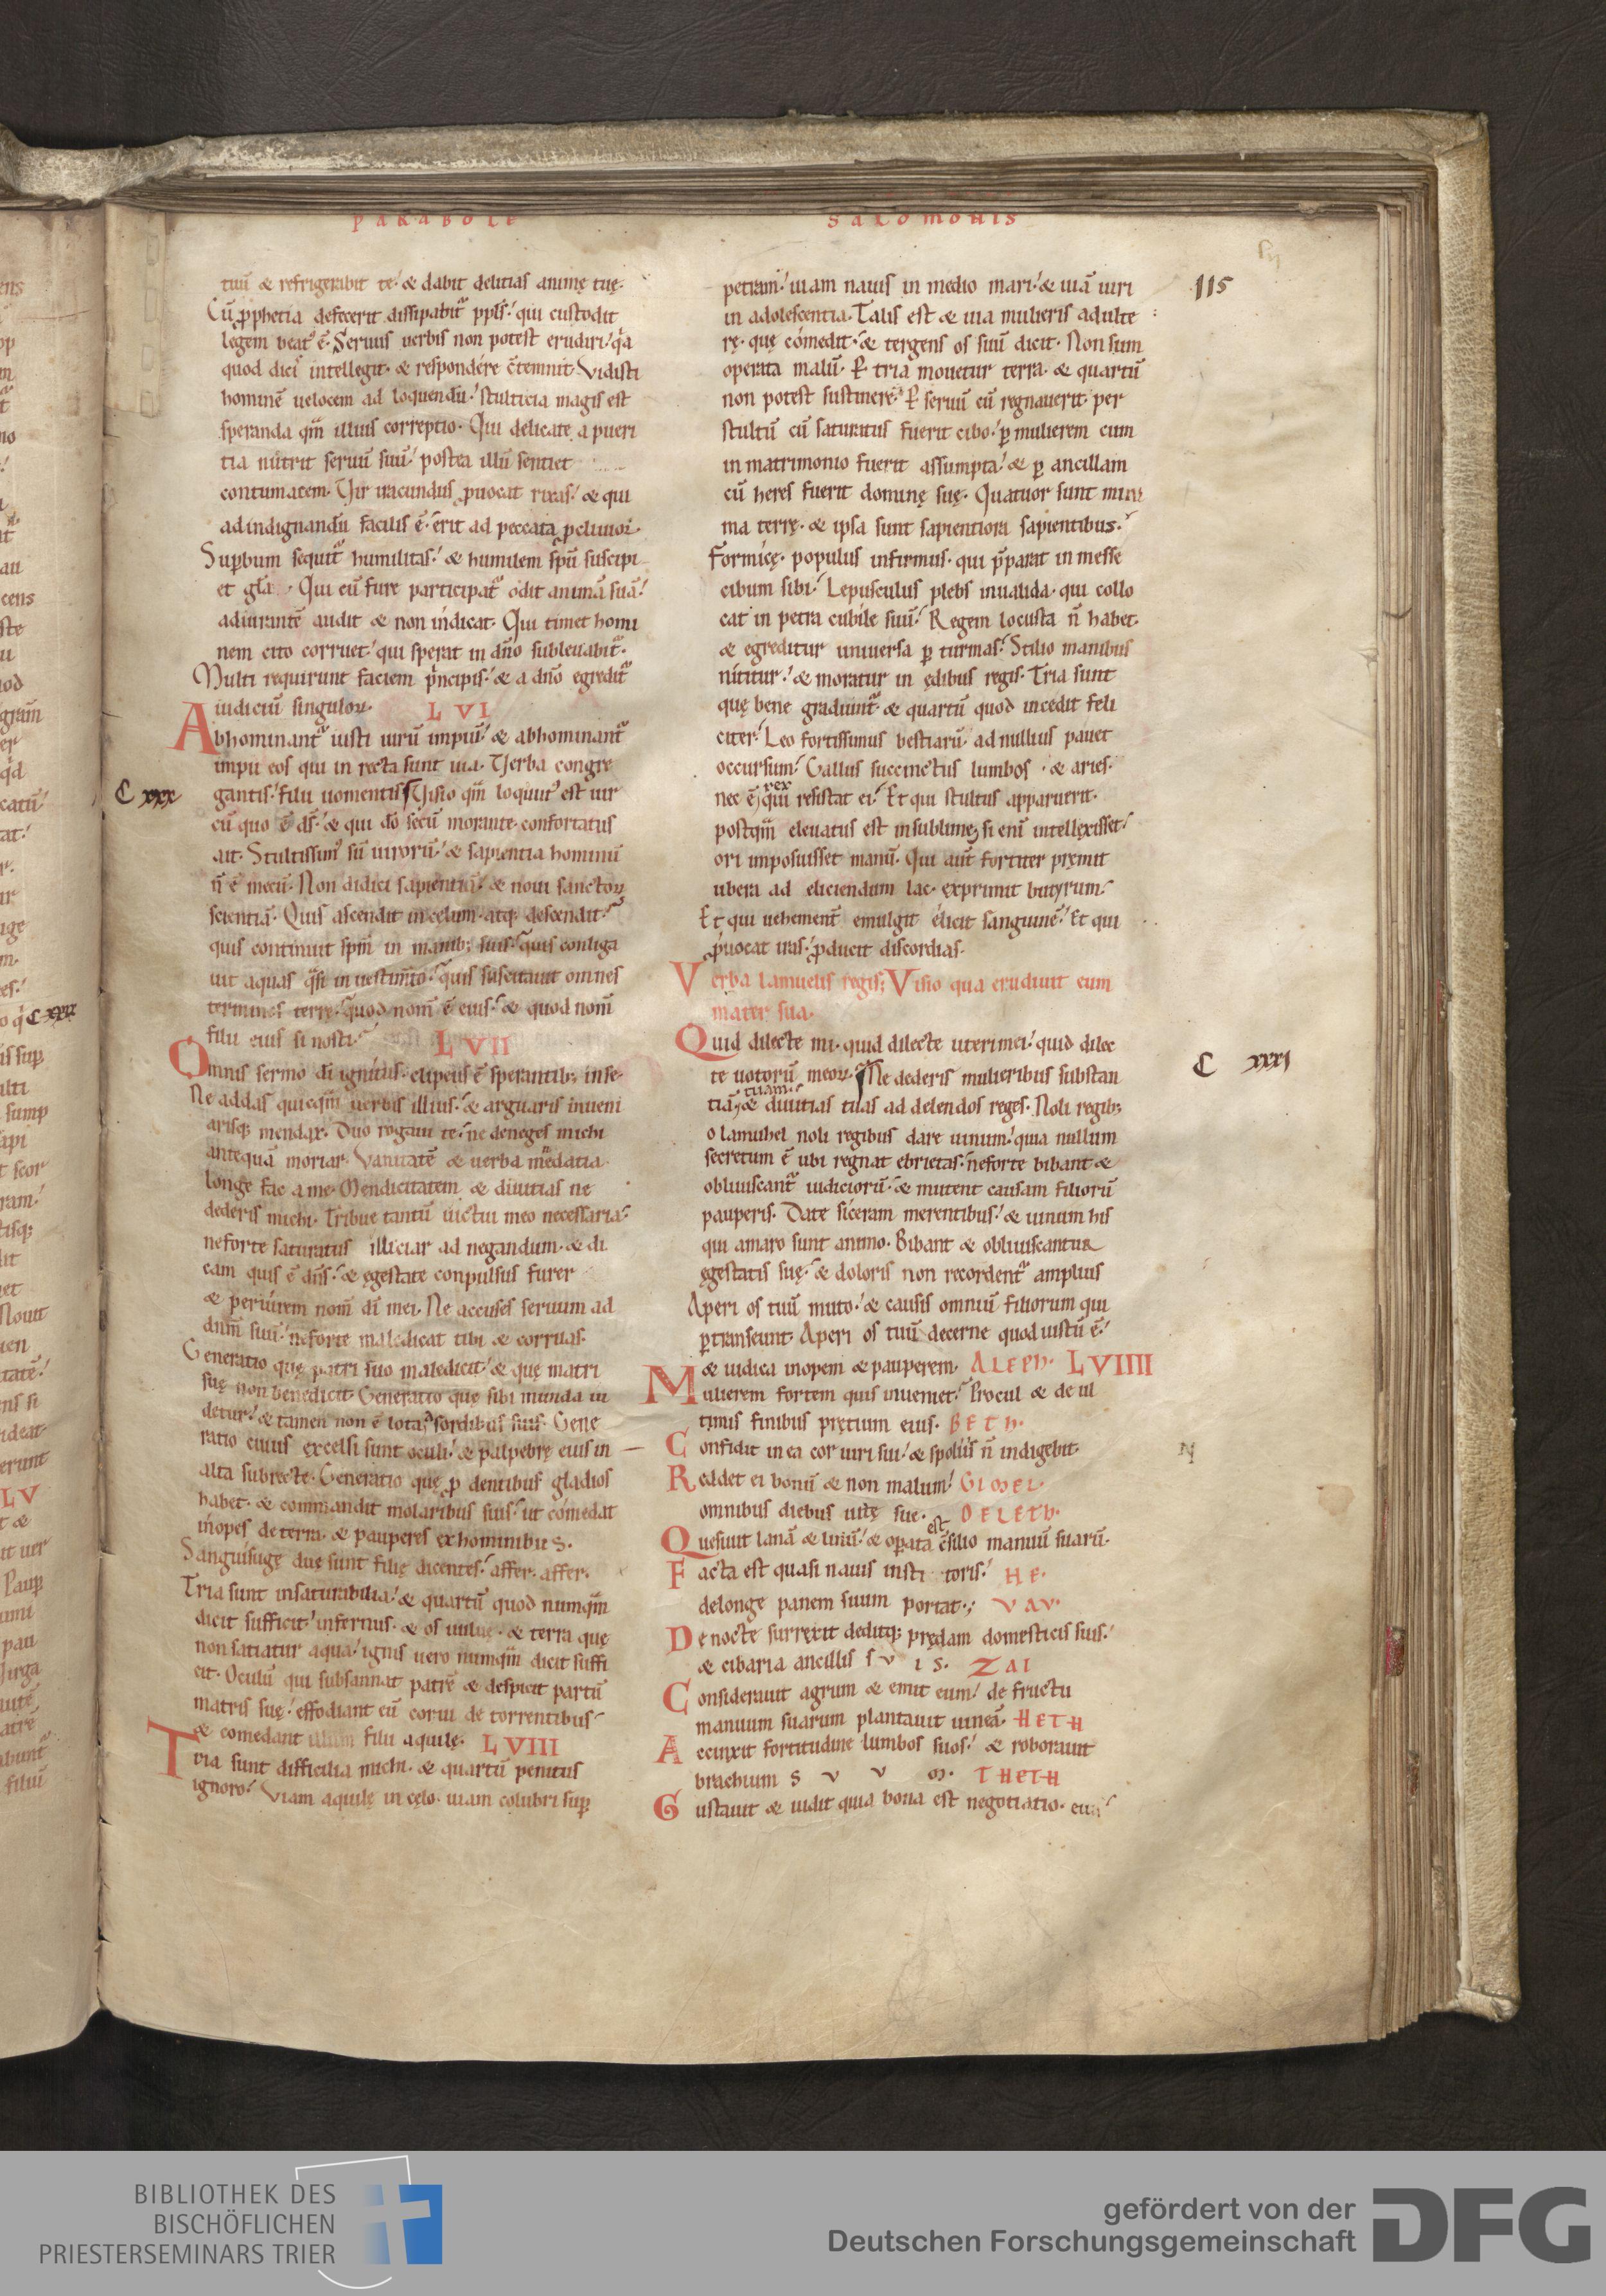 PARABOLE
SALOMONIS
tuū & refrigerabit te. & dabit delitias animę tuę.
Cū ꝓphetia defecerit dissipabit᷑ ppłs. qui custodit
legem beat᷒ ē. Seruus uerbis non potest erudiri. q̇a
quod dicis intellegit. & respondere c̄temnit. Vidisti
hominē uelocem ad loquendū. stulticia magis est
speranda qm̄ illius correptio. Qui delicate a pueri
tia nutrit seruū suū. postea illū sentiet
contumacem. Vir iracundus ꝓuocat rixas. & qui
ad indignandū facilis ē. erit ad peccata ꝓcliuior.
Suꝑbum sequit᷑ humilitas. & humilem sp̄u suscipi
et gła. Qui cū fure participat᷑ odit animā suā.
adiurantē audit & non indicat. Qui timet homi
nem cito corruet. qui sperat in dn̄o subleuabit᷑.
Multi requirunt faciem ṗncipis. & a dn̄o egredit᷑
iudiciū singuloꝝ. LVI
Abhominant᷑ iusti uirū impiū. & abhominant᷑
impii eos qui in recta sunt uia. Verba congre
C xxx
gantis. filii uomentis Visio qm̄ loquut᷒ est uir
cū quo ē ds̄. & qui dō secū morante confortatus
ait. Stultissim᷒ sū uirorū. & sapientia hominū
n̄ ē mecū. Non didici sapientiā. & noui sanctoꝝ
scientiā. Quis ascendit in celum atq; descendit.
quis continuit spm̄ in manib; suis. quis colliga
uit aquas q̇si in uestimto. quis suscitauit omnes
terminos terrę. quod nom̄ ē eius. & quod nom̄
filii eius si nosti. LVII
Omnis sermo dī ignitus. clipeus ē sperantib; in se.
Ne addas quicqm̄ uerbis illius. & arguaris inueni
arisq; mendax. Duo rogaui te. ne deneges michi
antequā moriar. Vanitatē & uerba mēdatia
longe fac a me. Mendicitatem & diuitias ne
dederis michi. Tribue tantū uictui meo necessaria.
ne forte saturatus illiciar ad negandum. & di
cam quis ē dn̄s. & ęgestate conpulsus furer
& periurem nom̄ dī mei. Ne accuses seruum ad
dnm̄ suū. ne forte maledicat tibi & corruas.
Generatio quę patri suo maledicit. & quę matri
suę non benedicit. Generatio quę sibi munda ui
detur. & tamen non ē lota a sordibus suis. Gene
ratio cuius excelsi sunt oculi. & palpebrę eius in
alta subrecte. Generatio quę ꝓ dentibus gladios
habet. & commandit molaribus suis. ut cōmedat
inopes de terra. & pauperes ex hominibus.
Sanguisugę due sunt filię dicentes. affer. affer.
Tria sunt insaturabilia. & quartū quod numqm̄
dicit sufficit. infernus. & os uuluę. & terra que
non satiatur aqua. ignis uero numqm̄ dicit suffi
cit. Oculū qui subsannat patrē & despicit partū
matris suę. effodiant eū corui de torrentibus
& comedant illum filii aquilę. LVIII
Tria sunt difficilia michi. & quartū penitus
ignoro. Viam aquilę in cęlo. uiam colubri suꝑ
115
petram. uiam nauis in medio mari. & uiā uiri
in adolescentia. Talis est & uia mulieris adulte
rę. quę comedit. & tergens os suū dicit. Non sum
operata malū. Ꝑ tria mouetur terra. & quartū
non potest sustinere. Ꝑ seruū cū regnauerit. per
stultū cū saturatus fuerit cibo. ꝑ mulierem cum
in matrimonio fuerit assumpta. & ꝑ ancillam
cū heres fuerit dominę suę. Quatuor sunt mini
ma terrę. & ipsa sunt sapientiora sapientibus.
Formicę. populus infirmus. qui p̄parat in messe
cibum sibi. Lepusculus plebs inualida. qui collo
cat in petra cubile suū. Regem locusta n̄ habet.
& egreditur uniuersa ꝑ turmas. Stilio manibus
nititur. & moratur in ędibus regis. Tria sunt
quę bene gradiunt᷑. & quartū quod incedit feli
citer. Leo fortissimus bestiarū. ad nullius pauet
occursum. Gallus succinctus lumbos. & aries.
rex
nec ē qui resistat ei. Et qui stultus apparuerit.
postqm̄ eleuatus est in sublime, si eni intellęxisset.
ori imposuisset manū. Qui aut̄ fortiter pręmit
ubera ad eliciendum lac. exprimit butyrum.
Et qui uehement̄ emulgit elicit sanguinē. Et qui
ꝓuocat iras. ꝓducit discordias.
Verba lamuelis regis; Visio qua erudiuit eum
mater sua.
Quid dilecte mi. quid dilecte uteri mei. quid dilec
C xxxi
te uotorū meoꝝ. Ne dederis mulieribus substan
tuam
tiā, & diuitias tuas ad delendos reges. Noli regib;
o lamuhel noli regibus dare uinum. quia nullum
secretum ē ubi regnat ebrietas. ne forte bibant &
obliuiscant᷑ iudiciorū. & mutent causam filiorū
pauperis. Date siceram merentibus. & uinum his
qui amaro sunt animo. Bibant & obliuiscantur
ęgestatis suę. & doloris non recordent᷑ amplius
Aperi os tuū muto. & causis omniū filiorum qui
ꝑtranseunt. Aperi os tuū decerne quod iustū ē.
& iudica inopem & pauperem. ALEPH. LVIIII
Mulierem fortem quis inueniet. Procul & de ul
timis finibus pretium eius. BETH.
Confidit in ea cor uiri sui. & spoliis n̄ indigebit.
N
Reddet ei bonū & non malum. GIMEL.
omnibus diebus uitę sue. DELETH.
est
Quesiuit lanā & linū. & oꝑata c̄silio manuū suarū.
Facta est quasi nauis insti toris. HE.
de longe panem suum portat.; VAV.
De nocte surrexit deditq; prędam domesticis suis.
& cibaria ancillis SVIS. ZAI
Considerauit agrum & emit eum. de fructu
manuum suarum plantauit uineā. HETH
Accinxit fortitudine lumbos suos. & roborauit
brachium SVVM. THETH
Gustauit & uidit quia bona est negotiatio. eius
BIBLIOTHEK DES
BISCHÖFLICHEN
PRIESTERSEMINARS TRIER
gefördert von der
Deutschen Forschungsgemeinschaft
DFG